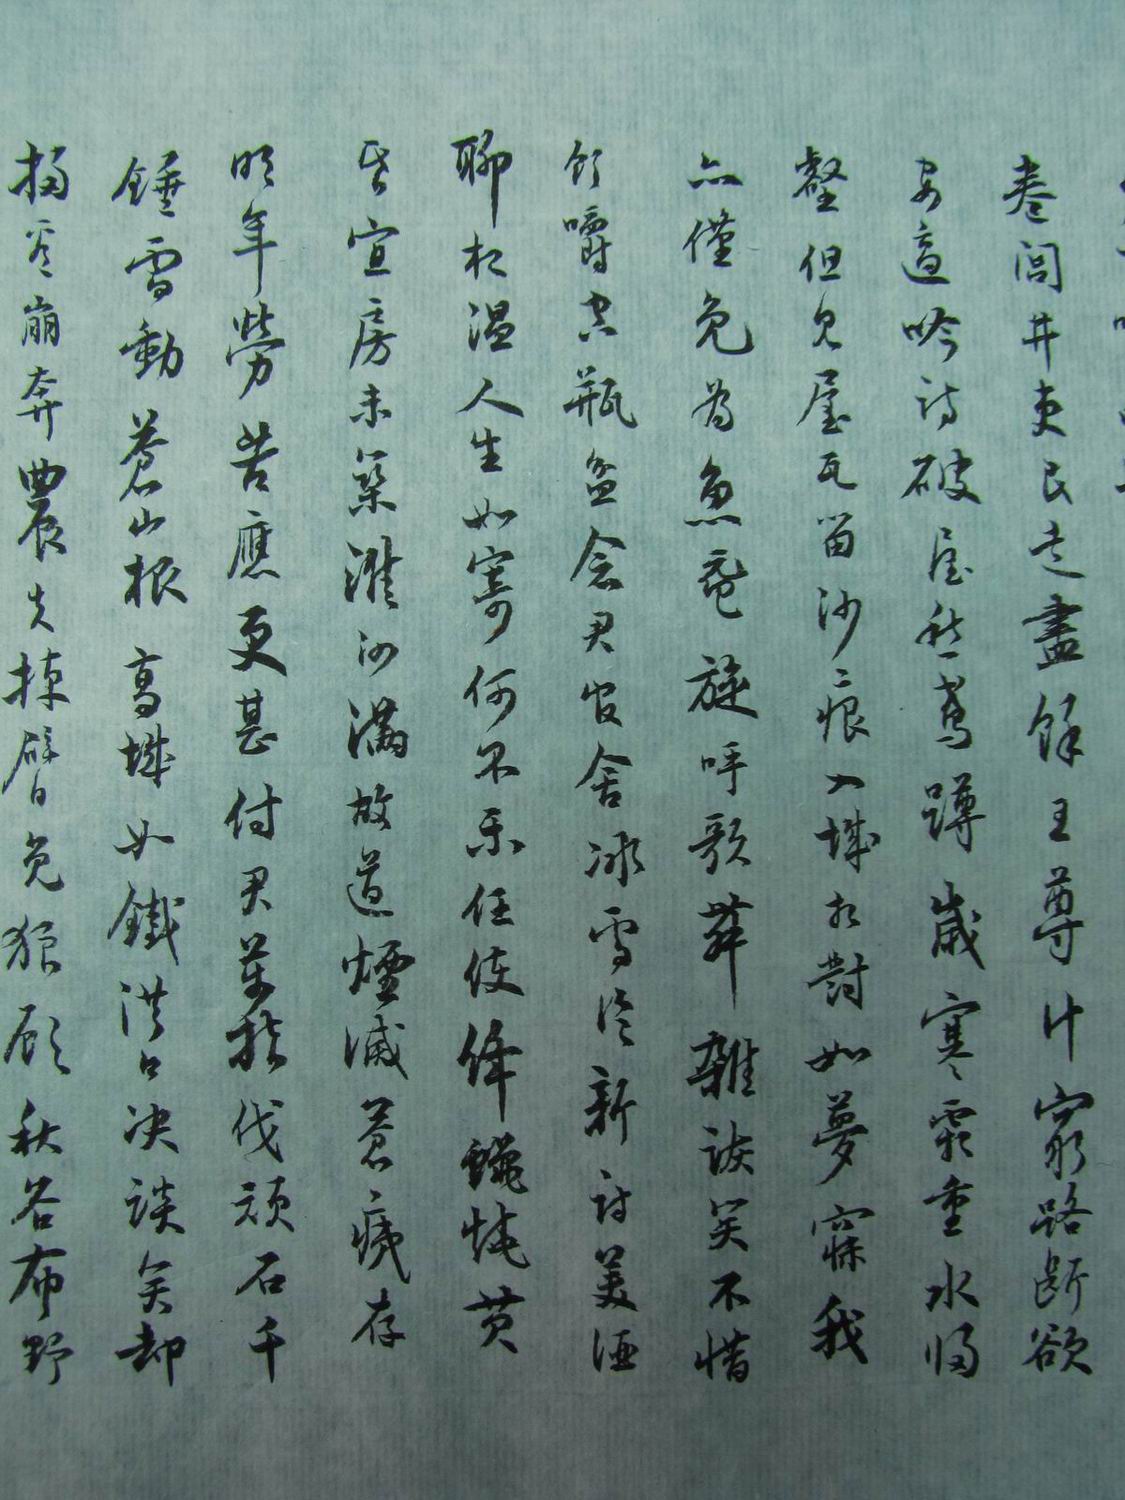 卷閭井吏民走盡餘王尊计窮路断欲
安適吟詩破屋愁鳶蹲歲寒霜重水归
壑但見屋瓦留沙痕入城相對如夢寐我
亦僅免為魚黿旋呼歌舞雜詼笑不惜
飲嚼空瓶盆念君官舍冰雪冷新詩美酒
聊相温人生如寄何不乐任使絳蠟燒黄
昏宣房未築淮泗滿故道煙滅蒼痍存
明年勞苦應更甚付君萬指伐頑石千
錘雷動蒼山根高城如鐵洪口决談笑却
掃看崩奔農夫掉臂免狼顧秋谷布野